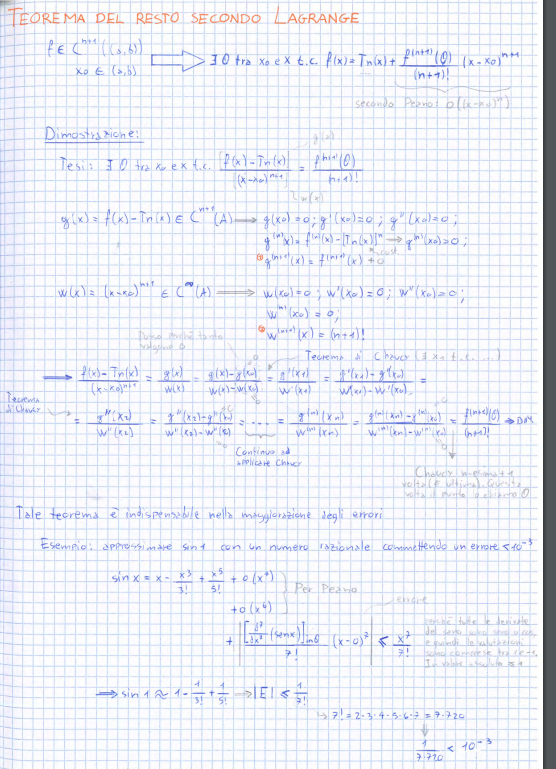 TEOREMA DEL RESTO SECONDO LAGRANGE
f ∈ C^(n+1) ((a,b)) ⟹ ∃ θ tra x₀ e x t.c. f(x) = Tn(x) + f^(n+1)(θ)/(n+1)! (x-x₀)^(n+1)
x₀ ∈ (a,b)
secondo Peano: o((x-x₀)^n)
Dimostrazione:
g(x)
Tesi: ∃ θ tra x₀ e x t.c. [f(x)-Tn(x)]/[(x-x₀)^(n+1)] = f^(n+1)(θ)/(n+1)!
w(x)
g(x) = f(x) - Tn(x) ∈ C^(n+1) (A) → g(x₀)=0; g'(x₀)=0; g''(x₀)=0;
g^(n)(x) = f^(n)(x) - [Tn(x)]^n → g^(n)(x₀)=0;
cost
g^(n+1)(x) = f^(n+1)(x) + 0
w(x) = (x-x₀)^(n+1) ∈ C^∞(A) ⟹ w(x₀)=0; w'(x₀)=0; w''(x₀)=0;
w^(n)(x₀) = 0;
w^(n+1)(x) = (n+1)!
perché tanto
valgono 0
Teorema di Chaucy (∃ x₁ t.c. ...)
⟹ f(x)-Tn(x)/(x-x₀)^(n+1) = g(x)/w(x) = g(x)-g(x₀)/w(x)-w(x₀) = g'(x₁)/w'(x₁) = g'(x₁)-g'(x₀)/w'(x₁)-w'(x₀) =
Teorema
di Chaucy
= g''(x₂)/w''(x₂) = g''(x₂)-g''(x₀)/w''(x₂)-w''(x₀) = ... = g^(n)(xn)/w^(n)(xn) = g^(n)(xn)-g^(n)(x₀)/w^(n)(xn)-w^(n)(x₀) = f^(n+1)(θ)/(n+1)! ⟹ DIM.
Continuo ad
applicare Chaucy
Chaucy n-esima+1
volta (è ultima). Questa
volta il punto lo chiamo θ
Tale teorema è indispensabile nella maggiorazione degli errori
Esempio: approssimare sin1 con un numero razionale commettendo un errore < 10^-3
sin x = x - x³/3! + x⁵/5! + o(x⁵)
Per Peano
+ o(x⁶)
errore
+ |[d⁷/dx⁷ (sen x)] in θ / 7! (x-0)⁷| ≤ x⁷/7!
perché tutte le derivate
del seno sono sino o cos,
e quindi le valutazioni
sono comprese tra 1 e -1.
In valore assoluto ≤ 1
⟹ sin 1 ≈ 1 - 1/3! + 1/5! ⟹ |E| ≤ 1/7!
7! = 2·3·4·5·6·7 = 7·720
1/7·720 < 10^-3